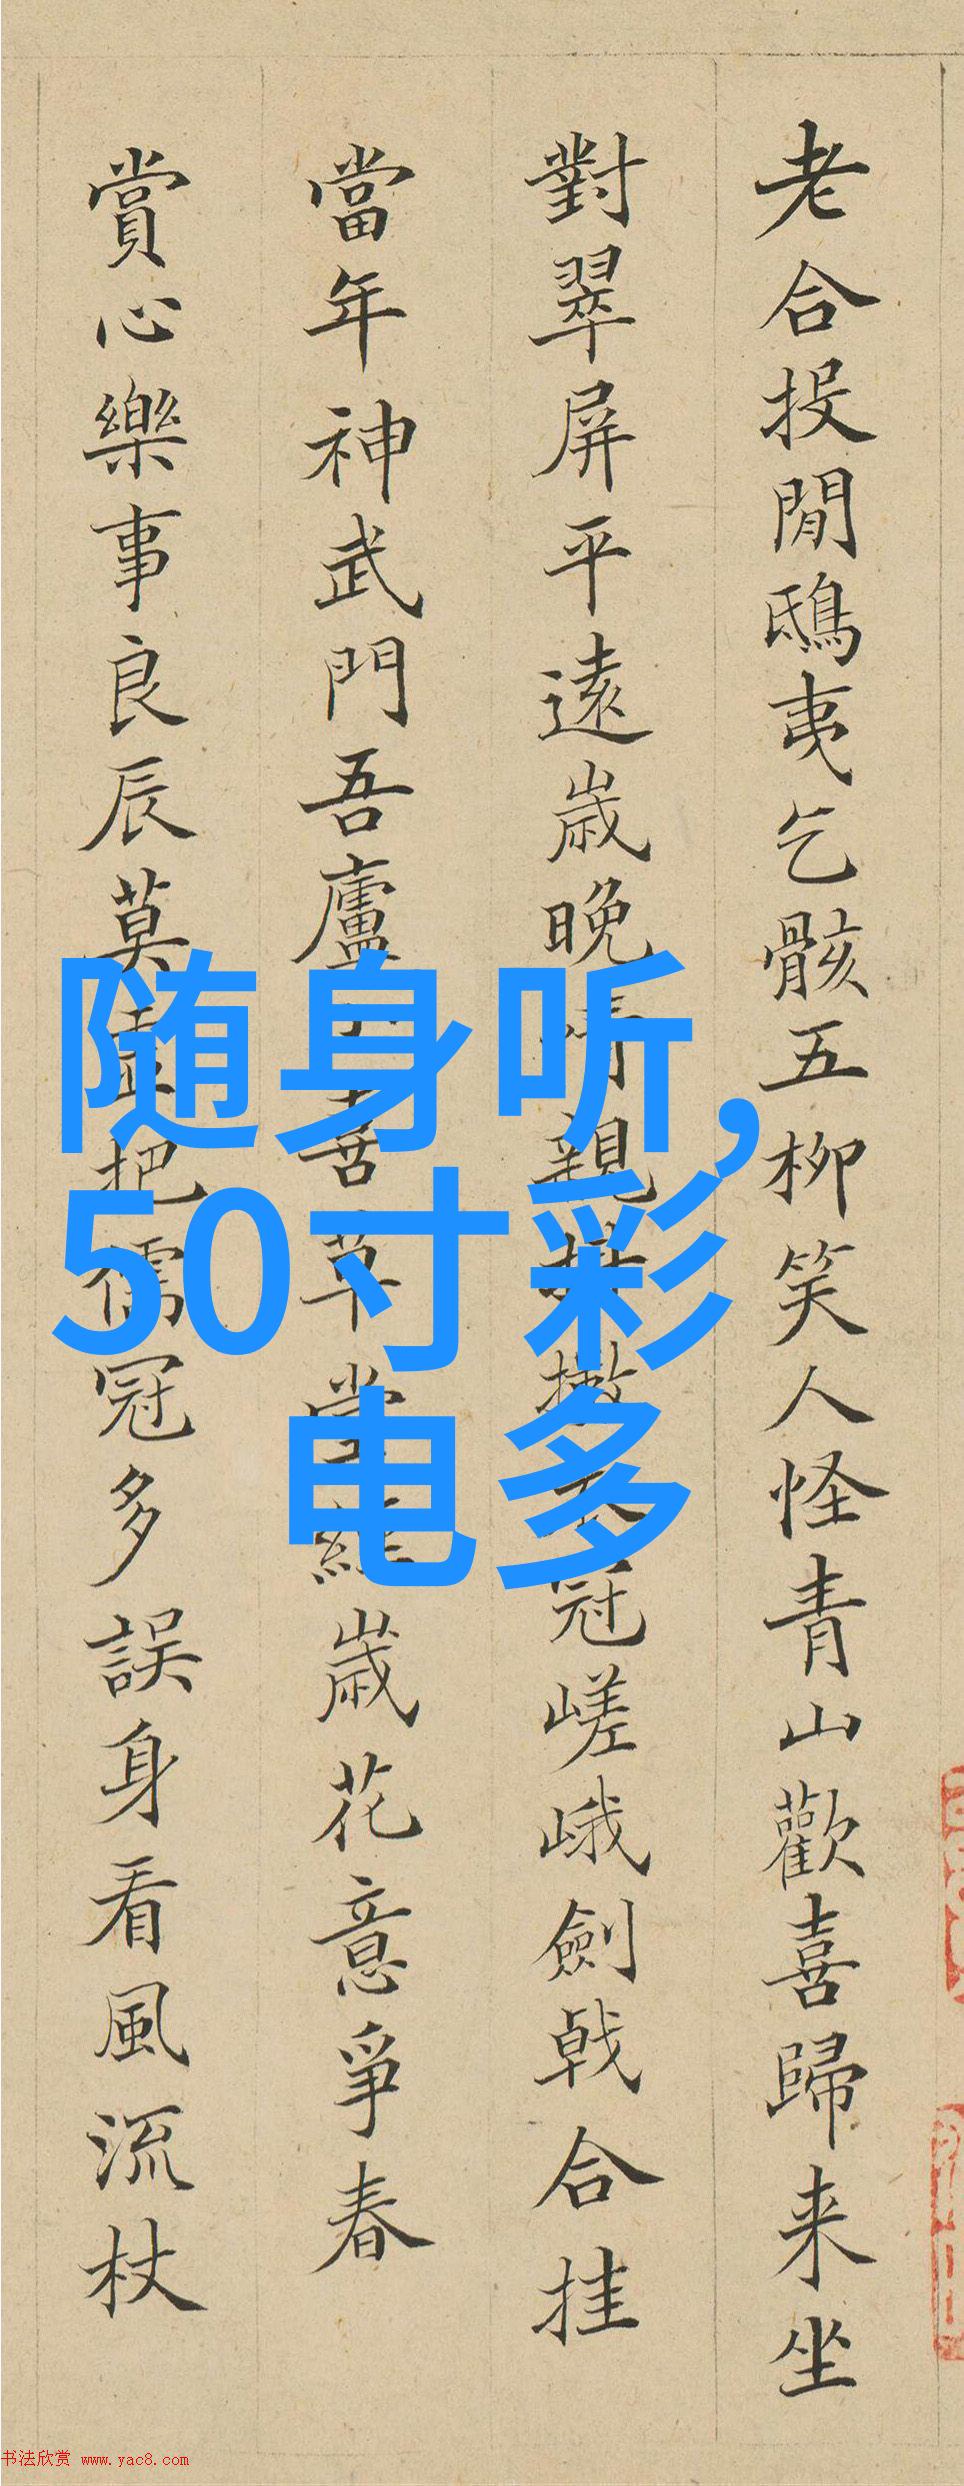 老合投閒鴟夷乞骸五柳笑人怪青山歡喜歸来坐
對翠屏平遠歳晚情親掛冠嵯峨劍戟合挂
當年神武門吾廬喜草堂經歳花意爭春
賞心樂事良辰莫把儒冠多誤身看風流杖
随身听,
50寸彩
电多
书法欣赏 www.yac8.com